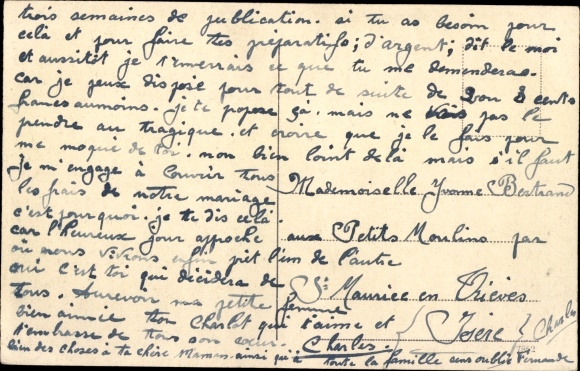 trois semaines de publication. si tu as besoin pour
celà et pour faire tes préparatifs; d'argent; dit le moi
et aussitôt je t'enverrais ce que tu me demenderas.
car je peux disposé pour tout de suite de 2 ou 3 cents
francs aumoins. je te propose ça. mais ne vas pas le
prendre au tragique. et crorre que je le fais pour
me moqué de toi. non bien loint de là mais s'il faut
je m'engage à couvrir tous
les frais de notre mariage
c'est pourquoi. je te dis celà.
car l'heureux jour approche
où nous vivrons enfin près l'un de l'autre
oui c'est toi qui décidera de
tous. Aurevoir ma petite femme
bien aimée ton Charlot qui t'aime et
t'embrasse de tous son cœur. Charles.
bien des choses à ta chère Maman ainsi qu'à toute la famille sans oublié Fernande
Mademoiselle Yvonne Bertrand
aux Petits Moulins par
St Maurice en Trièves
Isère
Charles